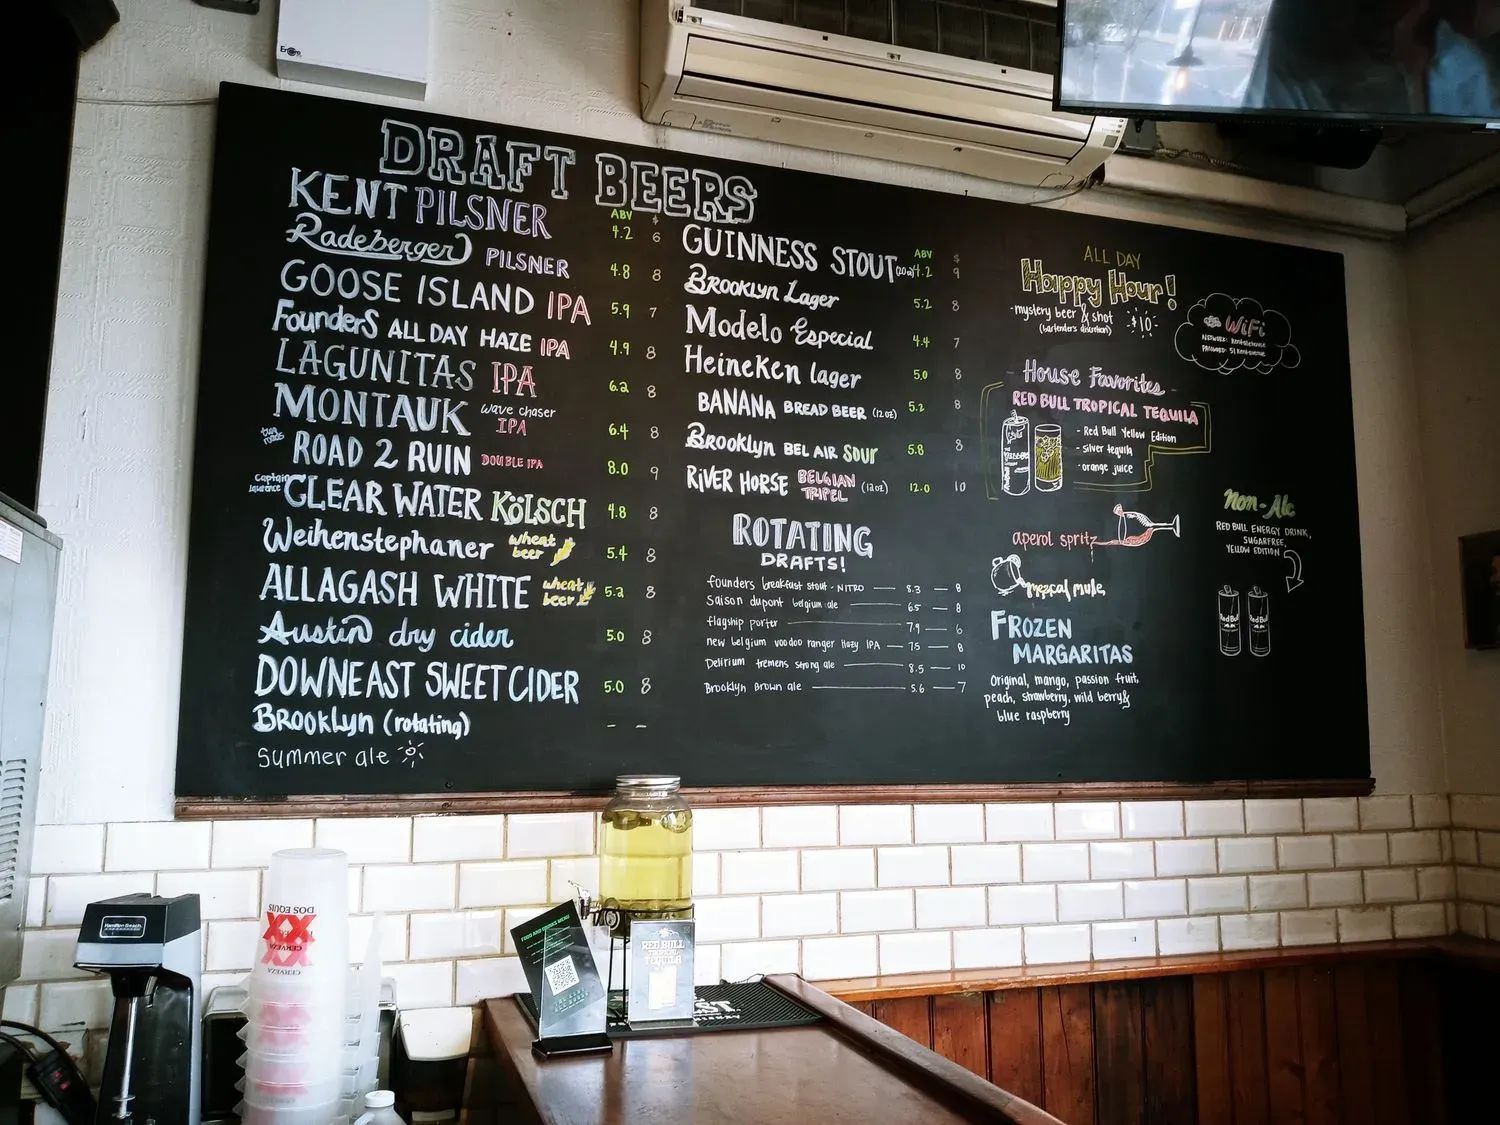 DRAFT BEERS
ABV $
KENT PILSNER 4.2 6
Radeberger PILSNER 4.8 8
GOOSE ISLAND IPA 5.9 7
Founders ALL DAY HAZE IPA 4.9 8
LAGUNITAS IPA 6.2 8
MONTAUK wave chaser IPA 6.4 8
two roads ROAD 2 RUIN DOUBLE IPA 8.0 9
Captain lawrence CLEAR WATER KÖLSCH 4.8 8
Weihenstephaner wheat beer 5.4 8
ALLAGASH WHITE wheat beer 5.2 8
Austin dry cider 5.0 8
DOWNEAST SWEET CIDER 5.0 8
BROOKLYN (rotating) - -
Summer ale
ABV $
GUINNESS STOUT (20oz) 4.2 9
Brooklyn Lager 5.2 8
Modelo Especial 4.4 7
Heineken lager 5.0 8
BANANA BREAD BEER (12oz) 5.2 8
Brooklyn BEL AIR SOUR 5.8 8
RIVER HORSE BELGIAN TRIPEL (12oz) 12.0 10
ROTATING
DRAFTS!
founders breakfast stout - NITRO — 8.3 — 8
Saison dupont belgium ale — 6.5 — 8
flagship porter — 7.9 — 6
new belgium voodoo ranger Hazy IPA — 7.5 — 8
Delirium tremens strong ale — 8.5 — 10
Brooklyn Brown ale — 5.6 — 7
ALL DAY
Happy Hour!
- mystery beer & shot $10
(bartender's discretion)
WiFi
House Favorites
RED BULL TROPICAL TEQUILA
- Red Bull Yellow Edition
- silver tequila
- orange juice
aperol spritz
mezcal mule,
FROZEN
MARGARITAS
Original, mango, passion fruit,
peach, strawberry, wild berry &
blue raspberry
Non-Alc
RED BULL ENERGY DRINK,
SUGARFREE,
YELLOW EDITION
Red Bull Red Bull
Hamilton Beach
DOS EQUIS
XX
CERVEZA
FOOD AND DRINKS MENU
RED BULL
TROPICAL
TEQUILA